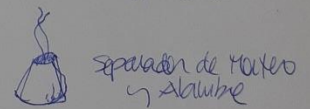 Separador de Mortero
y Alambre